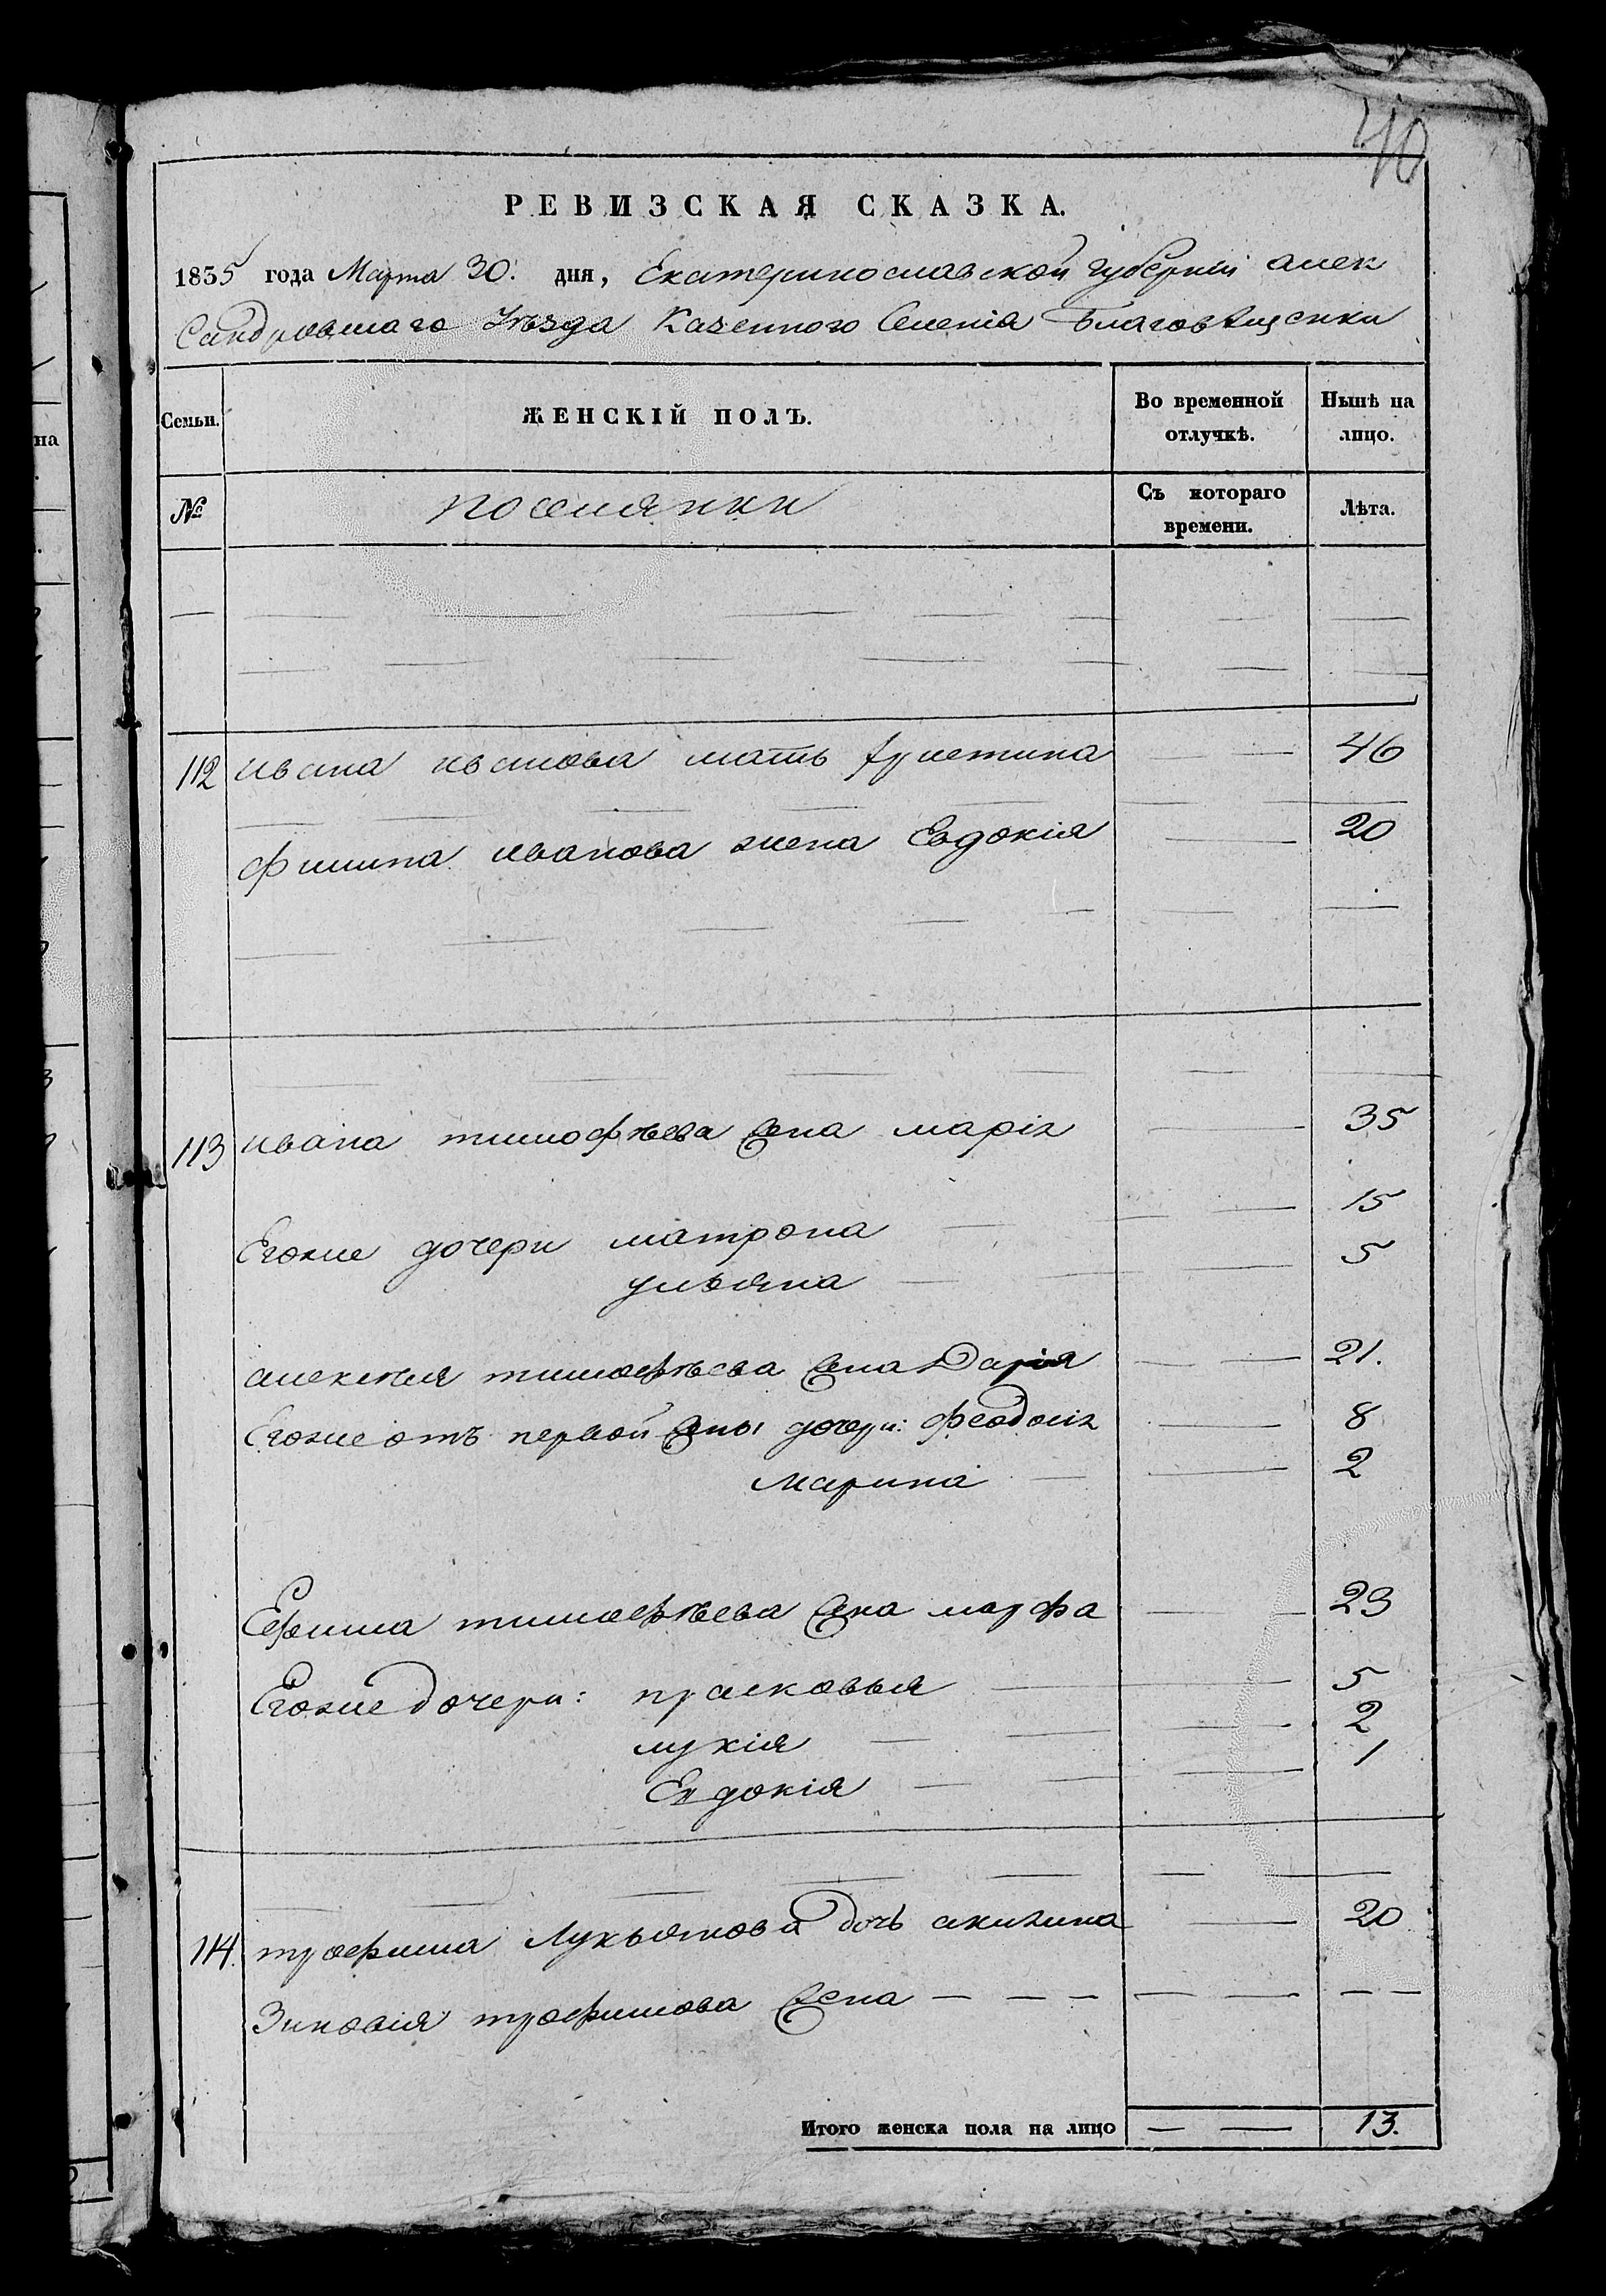 40
РЕВИЗСКАЯ СКАЗКА.
1835 года Марта 30. дня, Екатеринославской губерніи алек
Сандровшаго Уѣзда Казенного Селенія Благовѣщенки
Семьи. ЖЕНСКІЙ ПОЛЪ. Во временной отлучкѣ. Нынѣ на лицо.
№ поселянки Съ котораго времени. Лѣта.
112 ивана иванова мать устина 46
филипа иванова жена Евдокія 20
113 ивана тимофѣева жена марія 35
Егоже дочери матрона 15
ульяна 5
алексѣя тимофѣева жена Дарія 21.
Егоже отъ первой жены дочери: феодосія 8
марина 2
Ефима тимофѣева жена марфа 23
Егоже дочери: прасковья 5
лукія 2
Евдокія 1
114. трофима Лукьянова дочь акилина 20
Зиновія трофимова жена — — — — — — —
Итого женска пола на лицо — — 13.
на